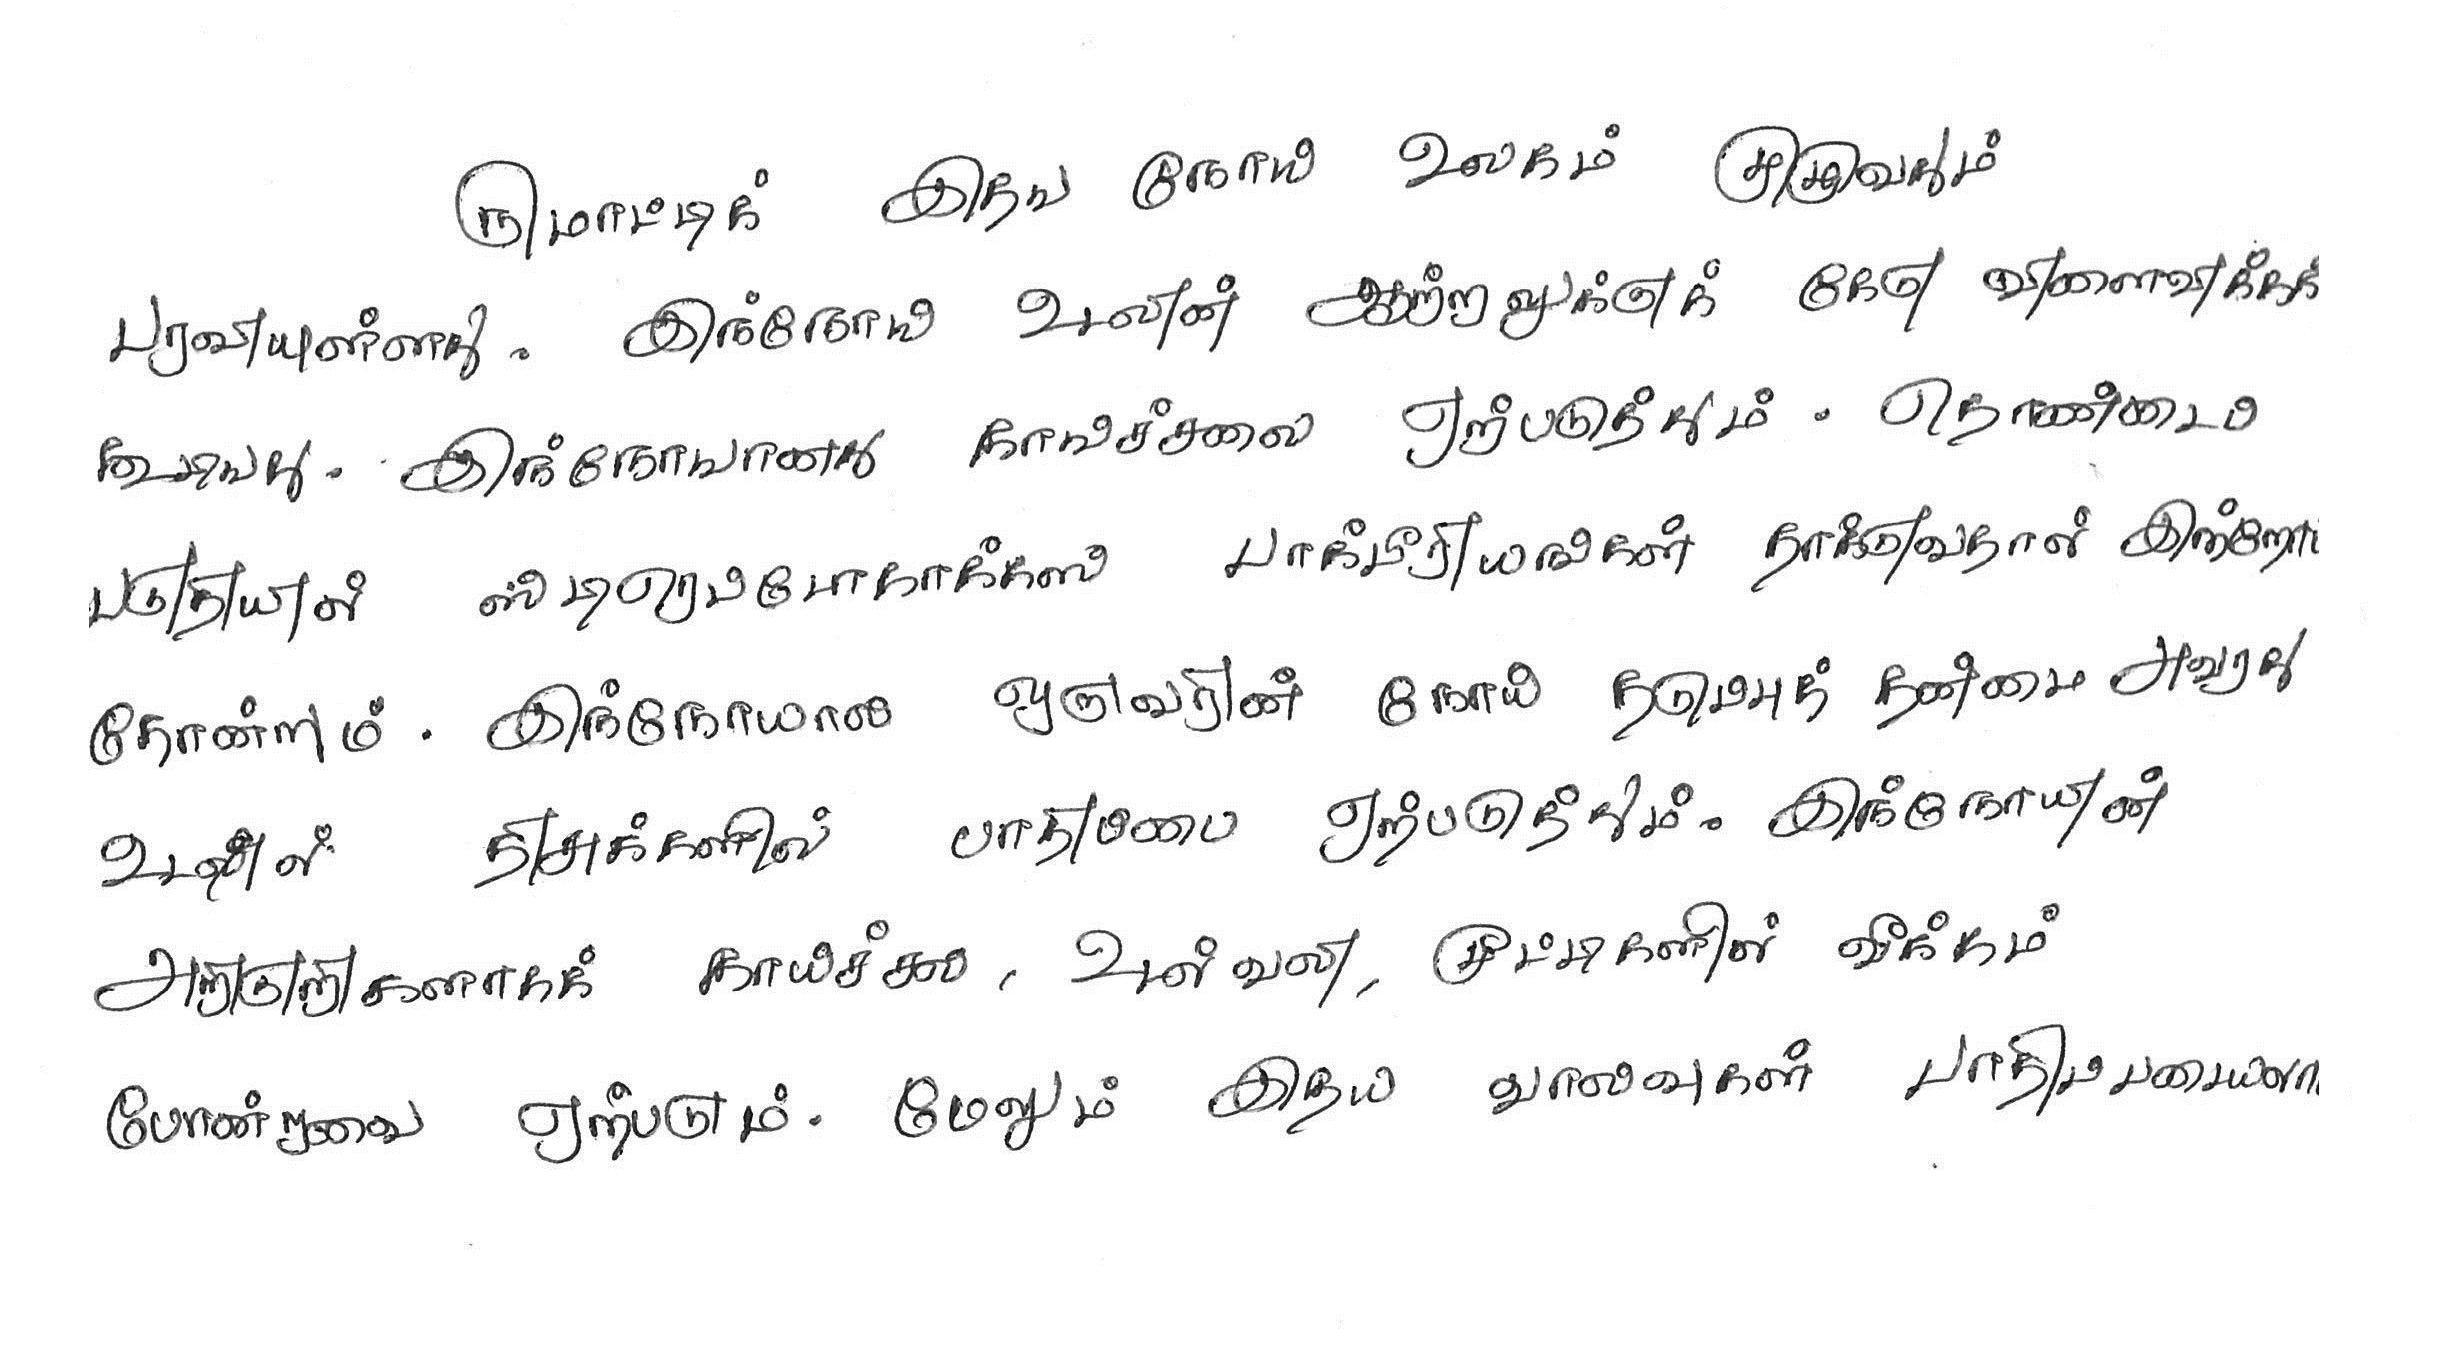 ருமாட்டிக் இதய நோய் உலகம் முழுவதும்
பரவியுள்ளது. இந்நோய் உடலின் ஆற்றலுக்குக் கேடு விளைவிக்கக்
கூடியது. இந்நோயானது காய்ச்சலை ஏற்படுத்தும். தொண்டைப்
பகுதியில் ஸ்டிரெப்போகாக்கஸ் பாக்டீரியங்கள் தாக்குவதால் இந்நோய்
தோன்றும். இந்நோயால் ஒருவரின் நோய் தடுப்புத் தன்மை அவரது
உடலில் திசுக்களில் பாதிப்பை ஏற்படுத்தும். இந்நோயின்
அறிகுறிகளாகக் காய்ச்சல், உடல்வலி, மூட்டிகளில் வீக்கம்
போன்றவை ஏற்படும். மேலும் இதய வால்வுகள்